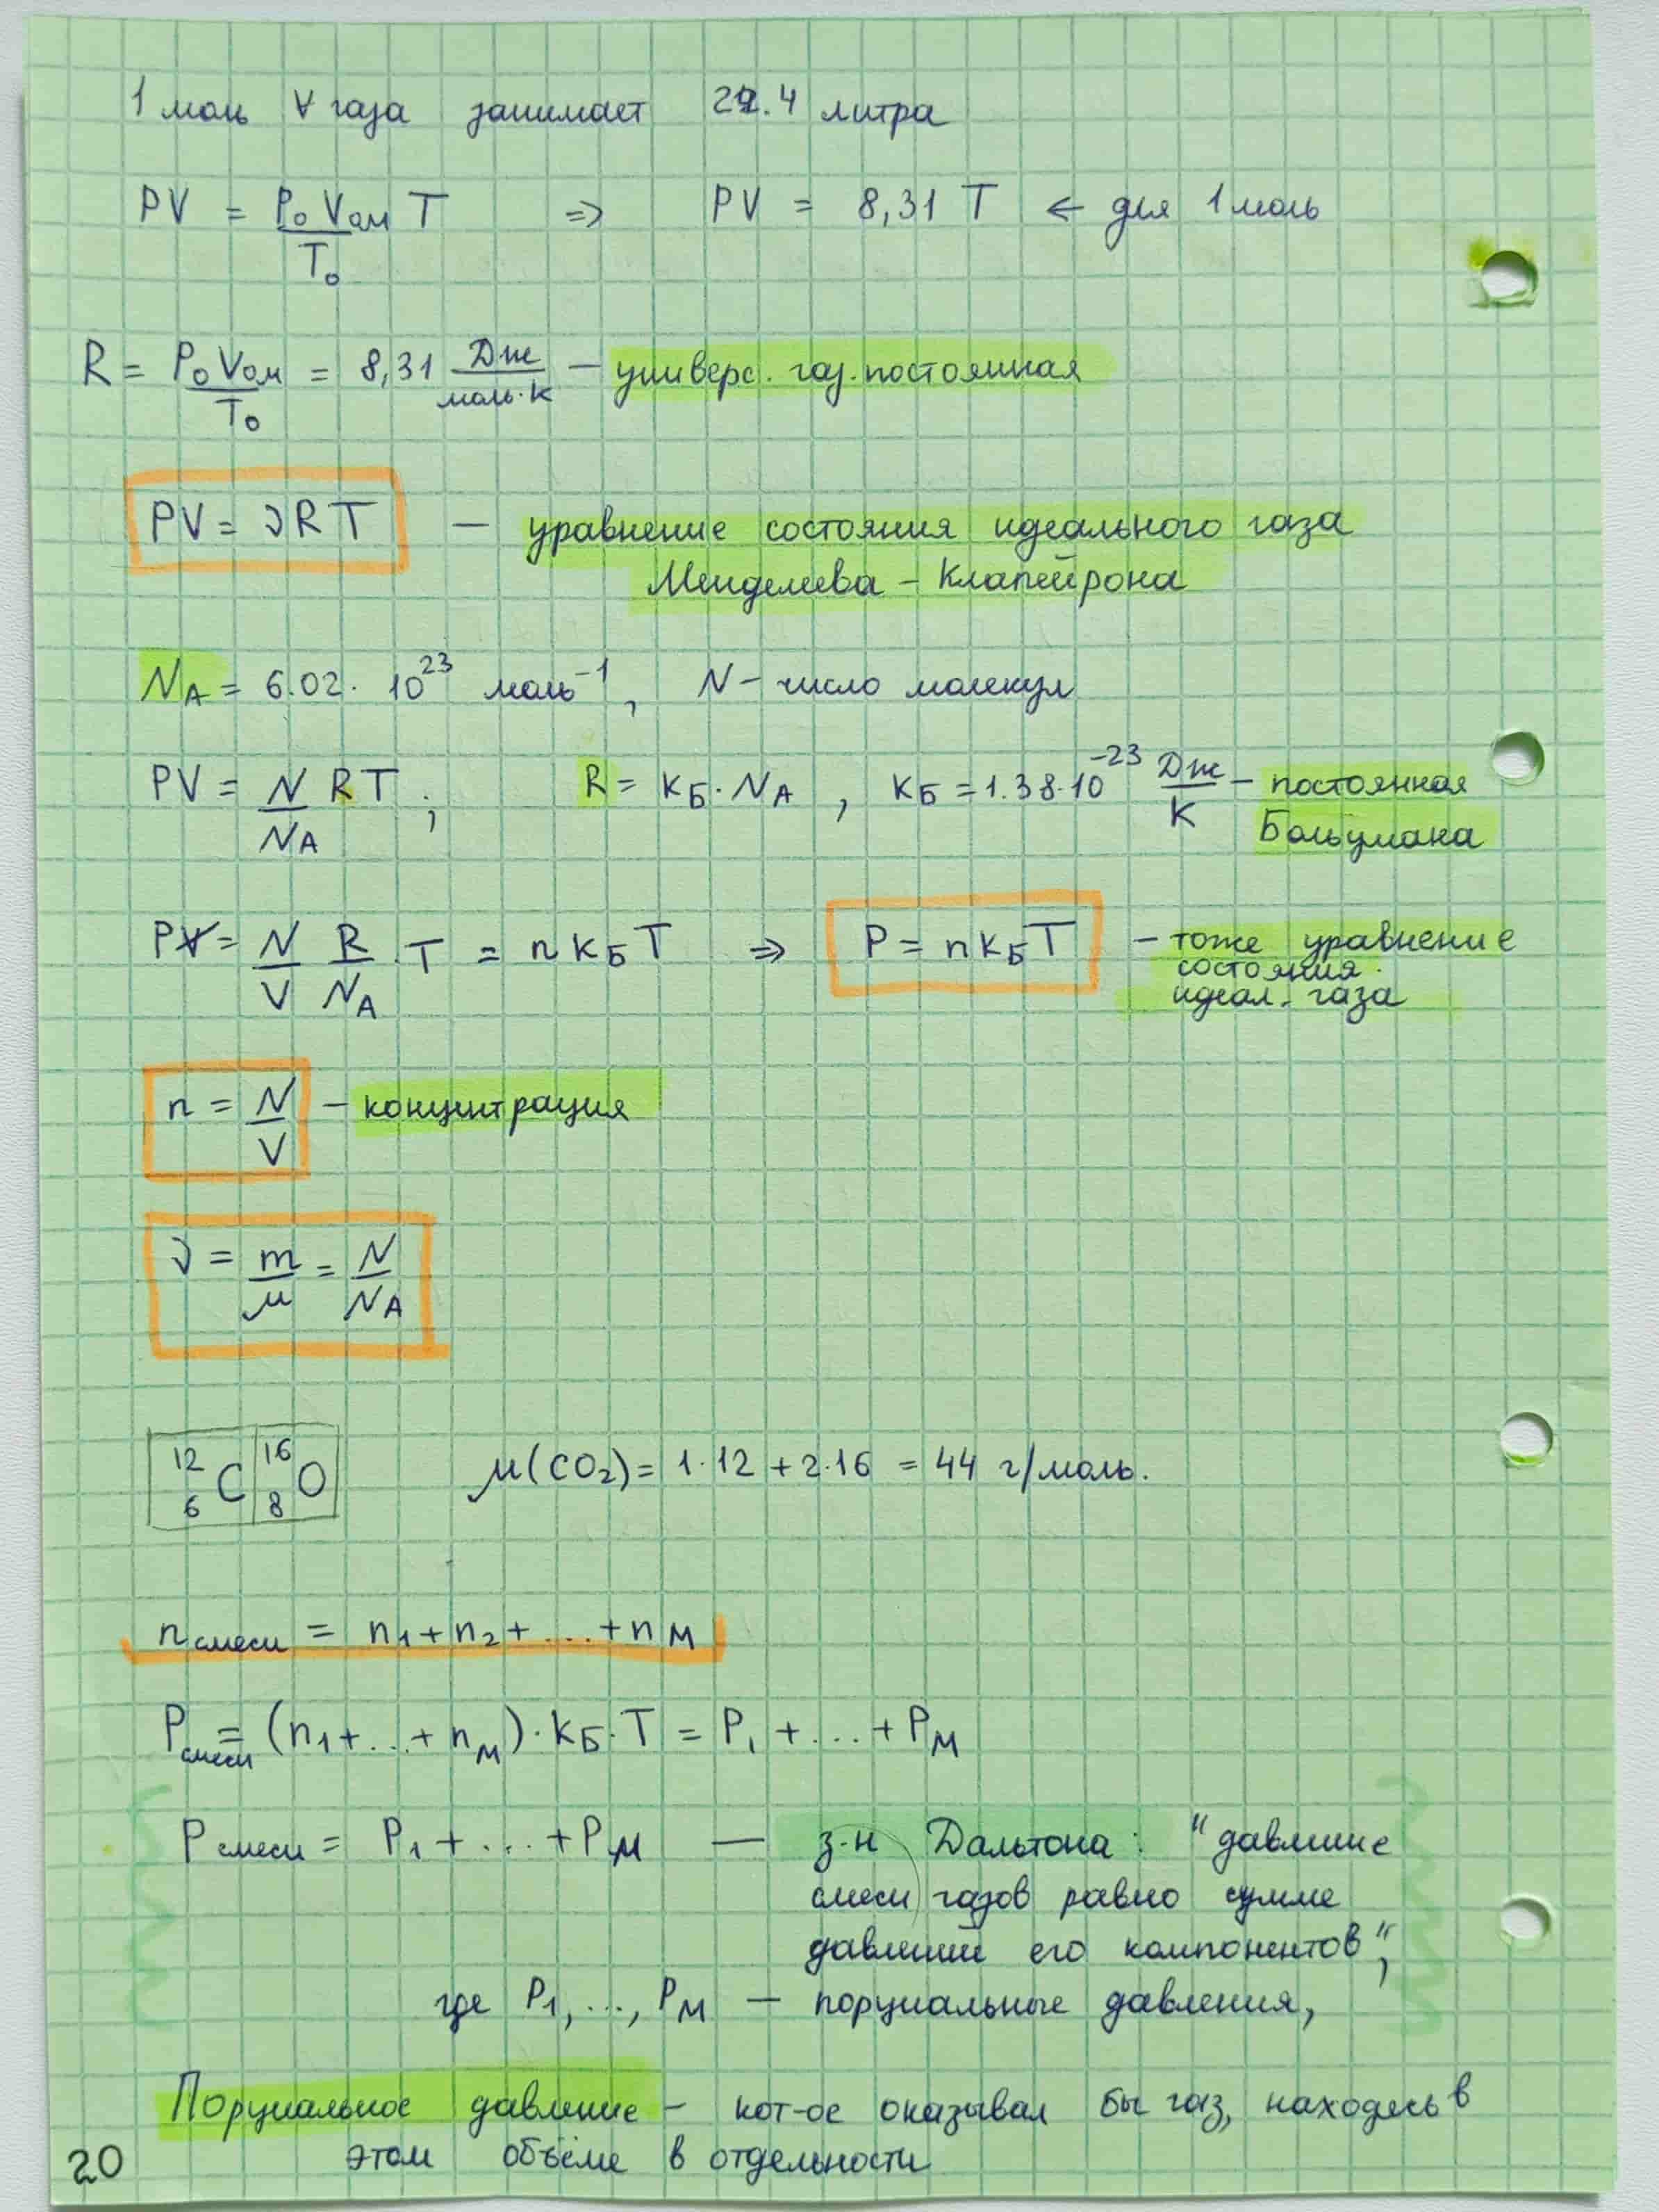 1 моль ∀ газа занимает 22.4 литра
PV = P₀V₀м/T₀ T ⇒ PV = 8,31 T ← для 1 моль
R = P₀V₀м/T₀ = 8,31 Дж/моль·К – универс. газ. постоянная
PV = νRT — уравнение состояния идеального газа
Менделеева – Клапейрона
N_A = 6.02 · 10²³ моль⁻¹, N – число молекул
PV = N/N_A RT; R = k_Б · N_A, k_Б = 1.38·10⁻²³ Дж/К – постоянная
Больцмана
PV = N/V R/N_A · T = n k_Б T ⇒ P = n k_Б T – тоже уравнение
состояния
идеал. газа
n = N/V – концентрация
ν = m/μ = N/N_A
¹²₆C ¹⁶₈O μ(CO₂) = 1·12 + 2·16 = 44 г/моль.
n смеси = n₁ + n₂ + ... + n_M
P смеси = (n₁ + ... + n_M) · k_Б · T = P₁ + ... + P_M
P смеси = P₁ + ... + P_M — з-н Дальтона: "давление
смеси газов равно сумме
давлений его компонентов",
где P₁, ..., P_M — порциальные давления,
Порциальное давление – кот-ое оказывал бы газ, находясь в
этом объёме в отдельности
20